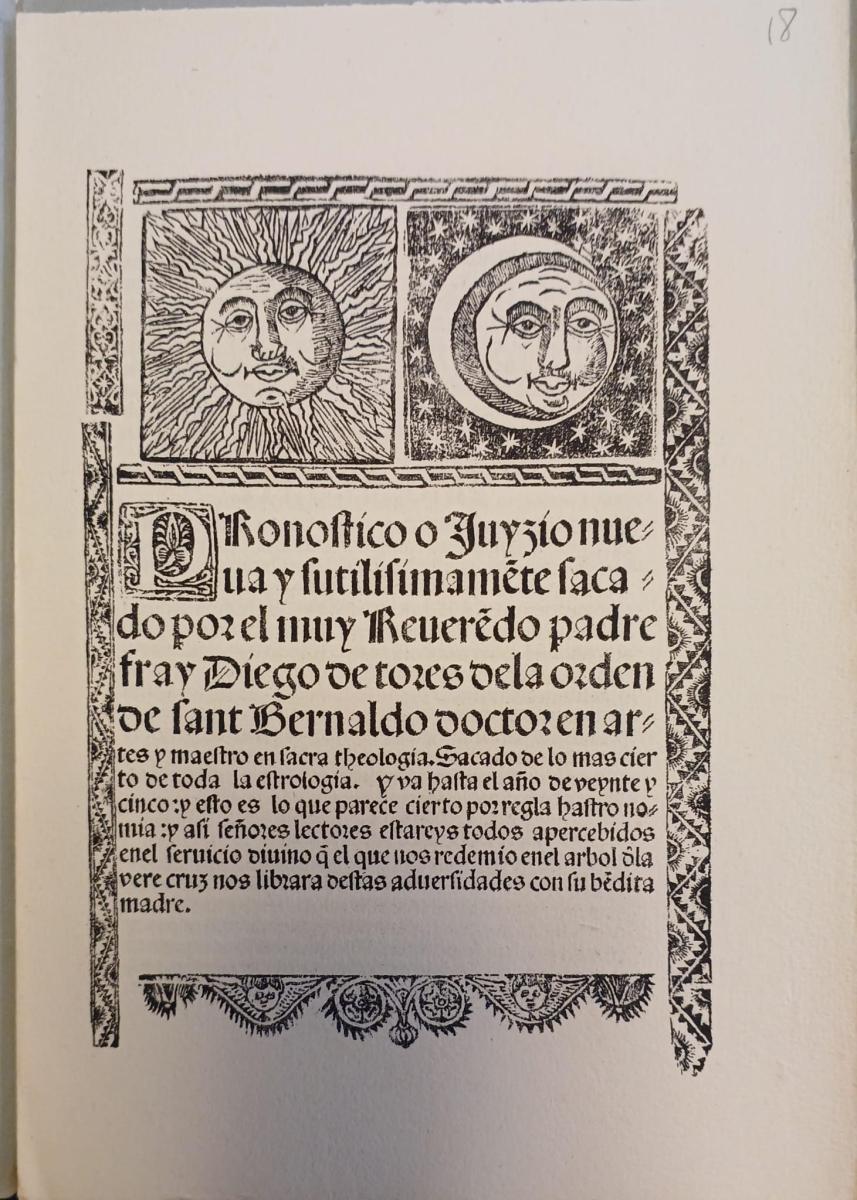 18
PRonostico o Juyzio nue⸗
ua y sutilisimamẽte saca ⸗
do por el muy Reuerẽdo padre
fray Diego de tores dela orden
de sant Bernaldo doctor en ar⸗
tes y maestro en sacra theologia. Sacado de lo mas cier
to de toda la estrologia. y va hasta el año de veynte y
cinco: y esto es lo que parece cierto por regla hastro no⸗
mia: y asi señores lectores estareys todos apercebidos
enel seruicio diuino q̃ el que nos redemio enel arbol d̃la
vere cruz nos librara destas aduersidades con su bẽdita
madre.